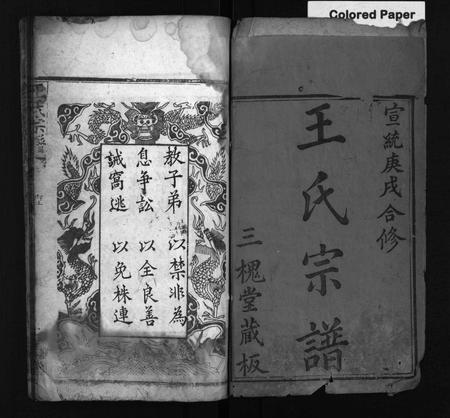 Colored Paper
宣統庚戌合修
王氏宗譜
三槐堂藏板
教子弟以禁非為
息爭訟以全良善
誡窩逃以免株連